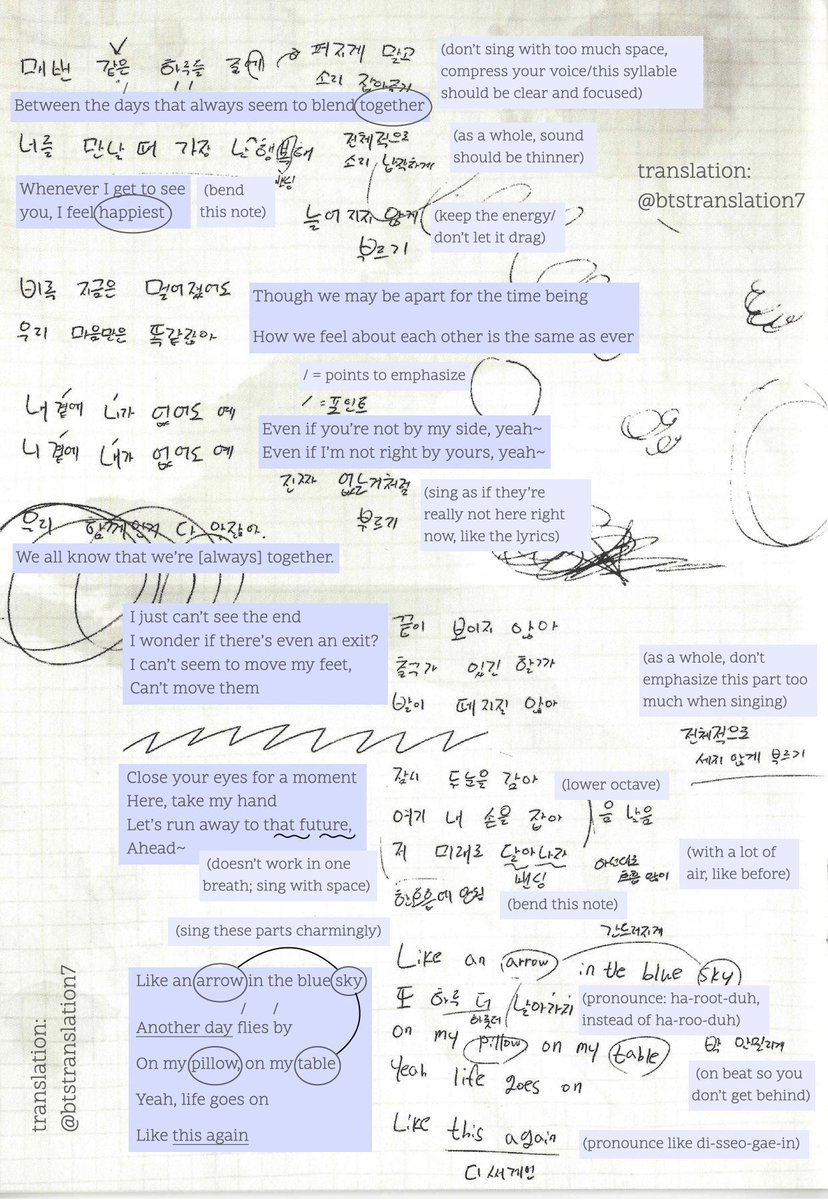 매번 같은 하루들 중에
퍼지게 말고
소리
(don't sing with too much space,
compress your voice/this syllable
should be clear and focused)
Between the days that always seem to blend together
너를 만날 때 가장 난 행복해
전체적으로
소리 납작하게
(as a whole, sound
should be thinner)
translation:
@btstranslation7
Whenever I get to see
you, I feel happiest
(bend
this note)
늘어지지 않게
부르기
(keep the energy/
don't let it drag)
비록 지금은 멀어졌어도
Though we may be apart for the time being
우리 마음만은 똑같잖아
How we feel about each other is the same as ever
/ = points to emphasize
/ = 포인트
내 곁에 니가 없어도 예
Even if you're not by my side, yeah~
니 곁에 내가 없어도 예
Even if I'm not right by yours, yeah~
진짜 없는거처럼
부르기
(sing as if they're
really not here right
now, like the lyrics)
우리 함께인거 다 알잖아.
We all know that we're [always] together.
I just can't see the end
I wonder if there's even an exit?
I can't seem to move my feet,
Can't move them
끝이 보이지 않아
출구가 있긴 할까
발이 떼지질 않아
(as a whole, don't
emphasize this part too
much when singing)
전체적으로
세지 않게 부르기
Close your eyes for a moment
Here, take my hand
Let's run away to that future,
Ahead~
잠시 두눈을 감아
(lower octave)
여기 내 손을 잡아
음 낮음
저 미래로 달아나자
밴딩
(with a lot of
air, like before)
(doesn't work in one
breath; sing with space)
한호흡에 안됨
(bend this note)
(sing these parts charmingly)
간드러지게
Like an arrow in the blue sky
Another day flies by
On my pillow, on my table
Yeah, life goes on
Like this again
Like an arrow in the blue sky
또 하루 더 날아가지
하룻더
(pronounce: ha-root-duh,
instead of ha-roo-duh)
on my pillow on my table
박 안밀리게
(on beat so you
don't get behind)
Yeah life goes on
Like this again
(pronounce like di-sseo-gae-in)
디써게인
translation:
@btstranslation7